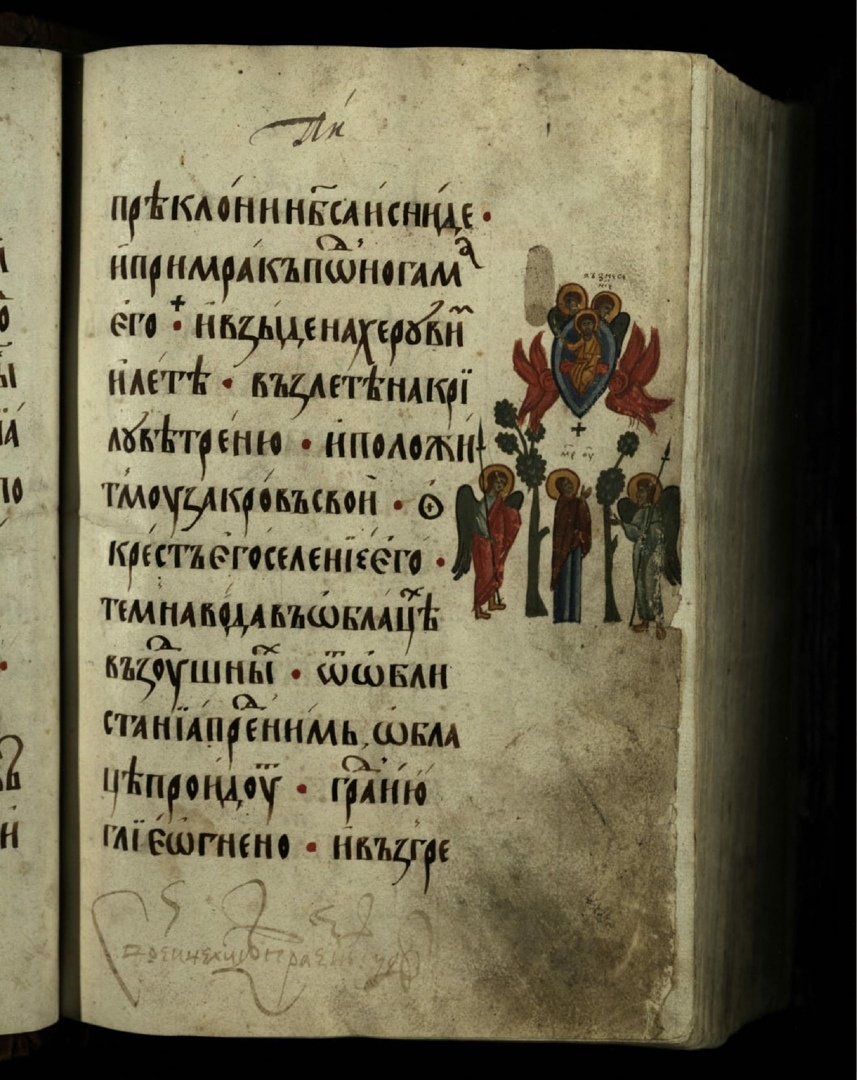 прѣклони нб҃са и сниде ·
и примракъ пѡ̑ ногама
его · и взыде на херꙋви̑
и летѣ · възлетѣ на крї
лꙋ вѣтреню · и положи
тмоу закровъ свои · ѻ
крестъ его селенїе его ·
темна вода въ ѡблацѣ
въздоушны̑ · ѿ ѡбли
станїа пре̑ нимь, ѡбла
ци проидоу̑ · гра̑ и ю
глїе ѡгнено · и възгре